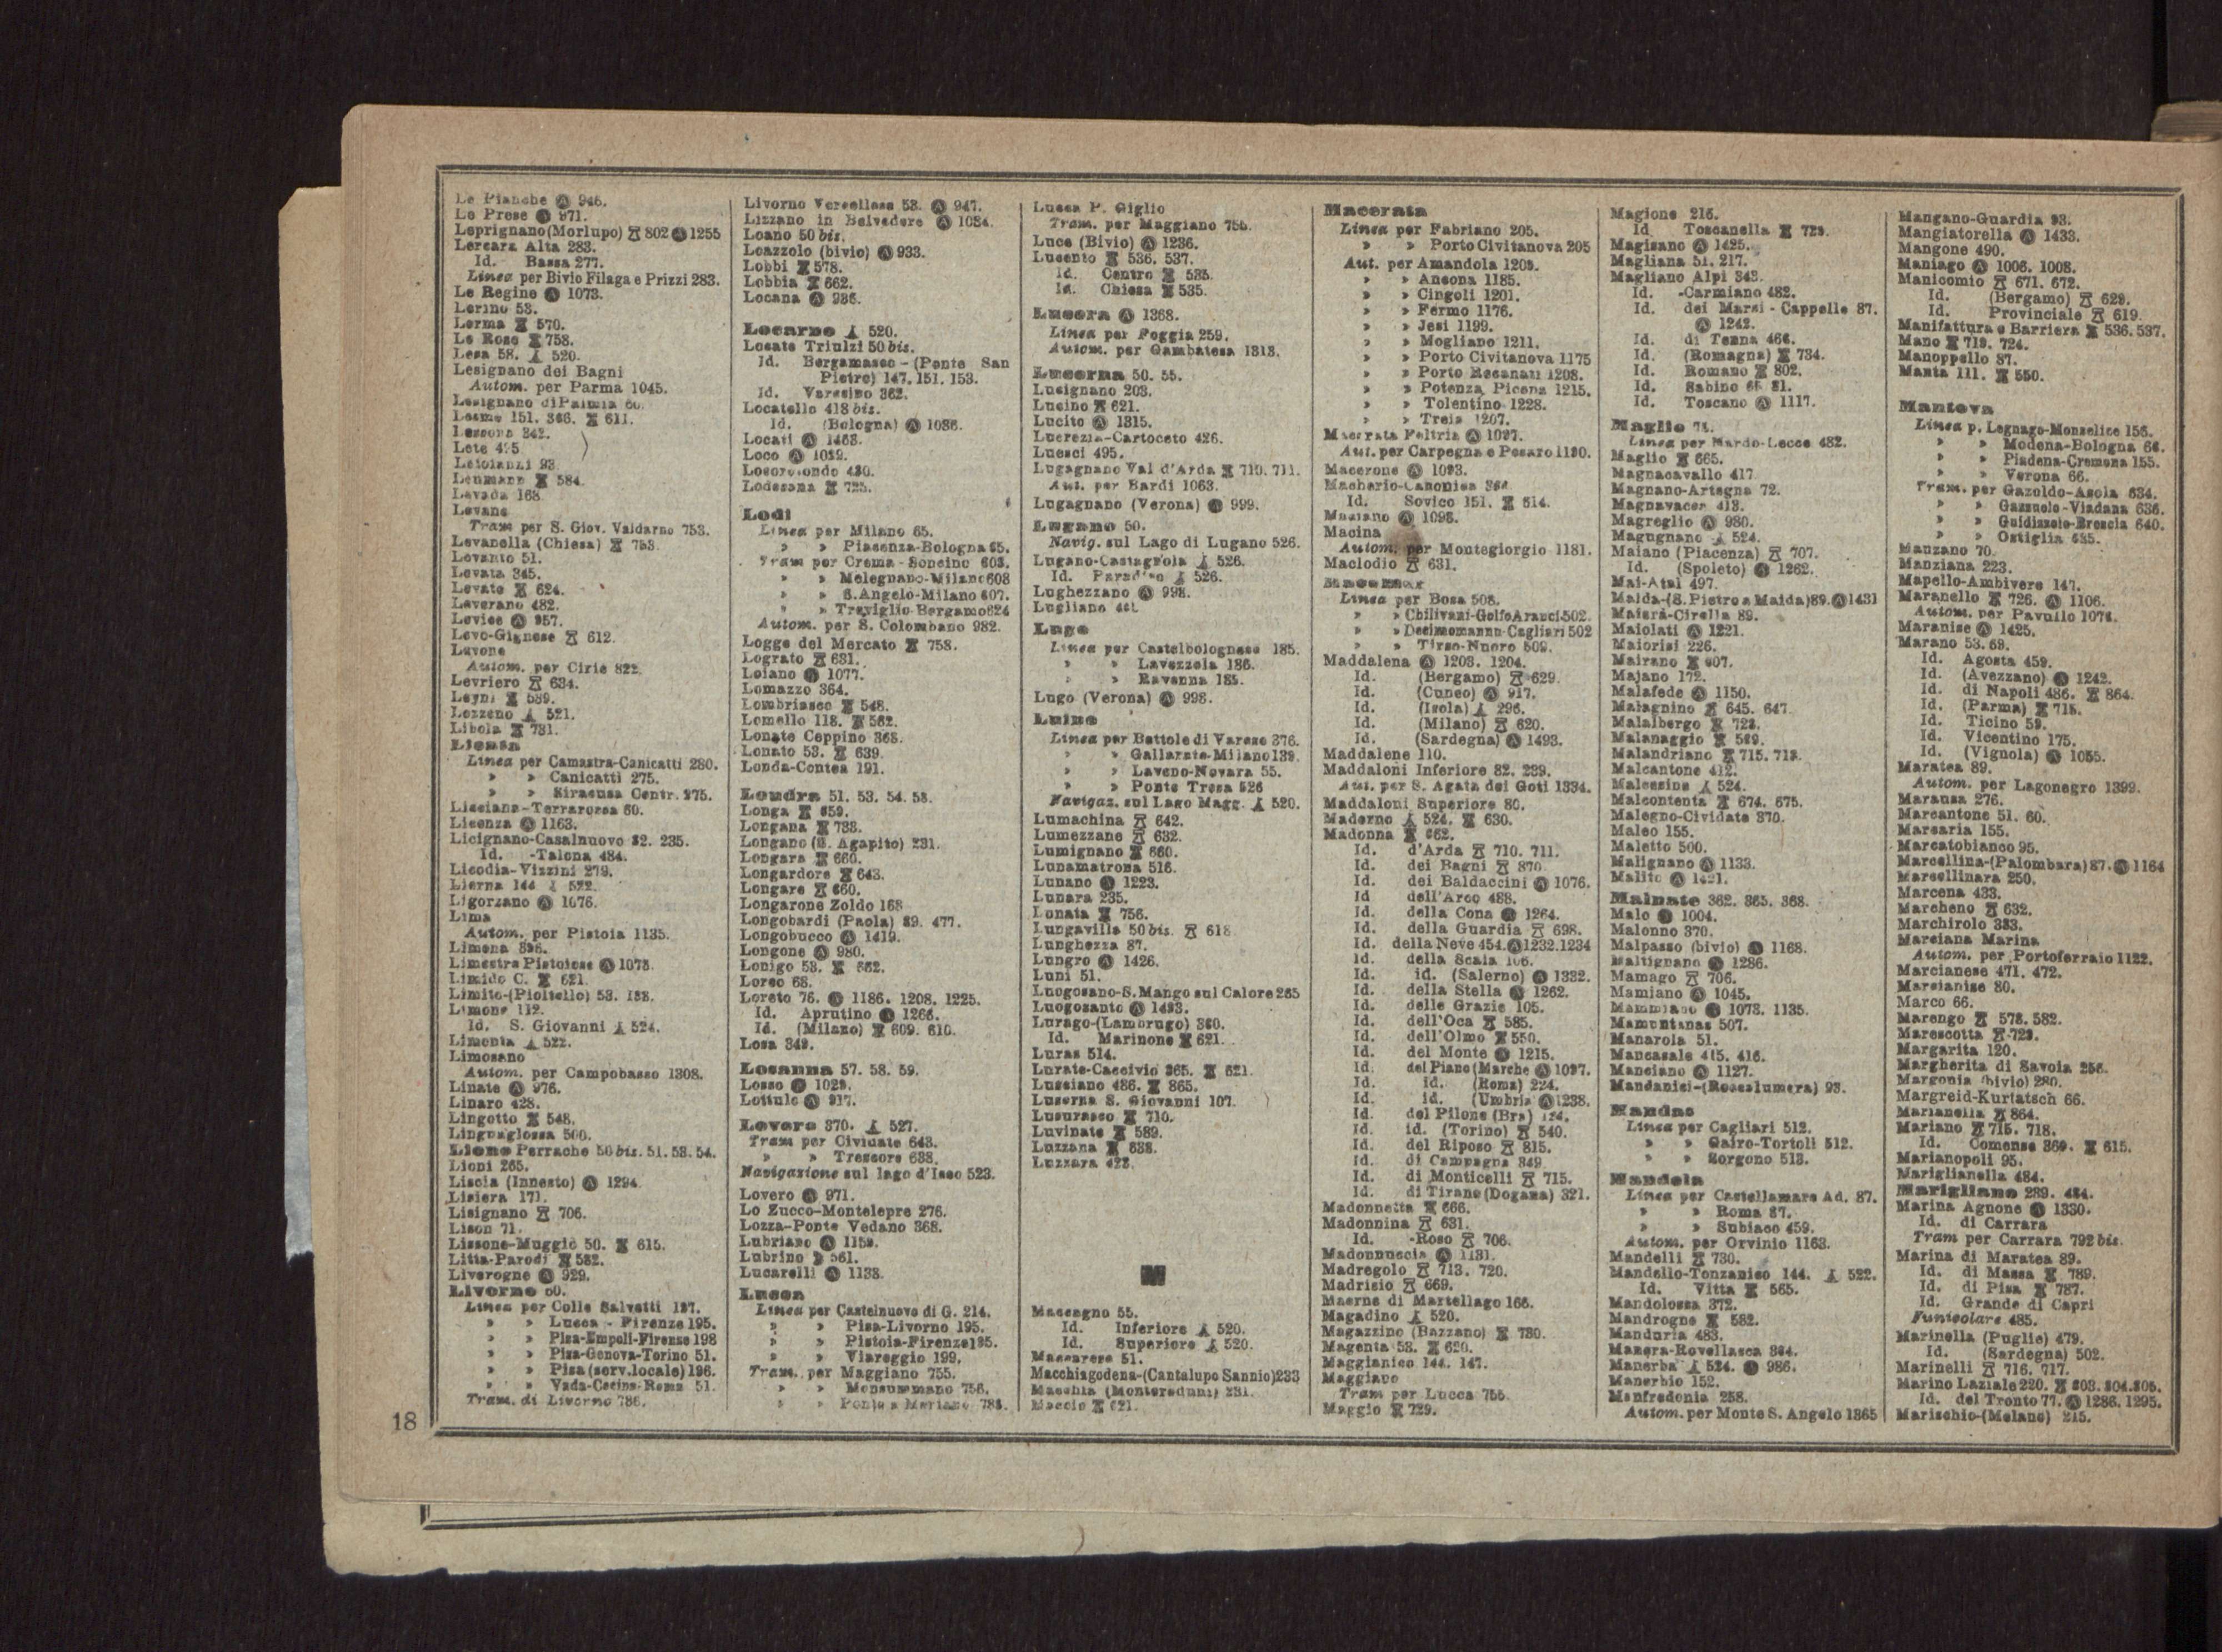 Le Pianche Ⓐ 946.
Le Prese Ⓐ 971.
Leprignano (Morlupo) 802 Ⓐ 1255
Lercara Alta 283.
Id. Bassa 277.
Linea per Bivio Filaga e Prizzi 283.
Le Regine Ⓐ 1073.
Lerino 53.
Lerma 570.
Le Rose 758.
Lesa 58. 520.
Lesignano dei Bagni
Autom. per Parma 1045.
Lesignano di Palmia 60.
Lesmo 151. 366. 611.
Lessona 342.
Lete
Letoianni 93
Leumann 584.
Levada 168.
Levane
Tram per S. Giov. Valdarno 753.
Levanella (Chiesa) 753.
Levanto 51.
Levata 345.
Levate 624.
Leverano 482.
Levice Ⓐ 957.
Levo-Gignese 612.
Levone
Autom. per Cirie 822.
Levriero 634.
Leyni 589.
Lezzeno 521.
Libola 731.
Licata
Linea per Camastra-Canicatti 280.
» » Canicatti 275.
» » Siracusa Centr. 275.
Licciana-Terrarossa 60.
Licenza Ⓐ 1163.
Licignano-Casalnuovo 82. 235.
Id. -Talona 484.
Licodia-Vizzini 279.
Lierna 144 522.
Ligorzano Ⓐ 1076.
Lima
Autom. per Pistoia 1135.
Limena
Limestra Pistoiese Ⓐ 1073.
Limido C. 621.
Limito-(Pioltello) 53. 153.
Limone 112.
Id. S. Giovanni 524.
Limonta 522.
Limosano
Autom. per Campobasso 1308.
Linate Ⓐ 976.
Linaro 428.
Lingotto 548.
Linguaglossa 500.
Lione Perrache 50 bis. 51. 53. 54.
Lioni 265.
Liscia (Innesto) Ⓐ 1294.
Lisiera 171.
Lisignano 706.
Lison 71.
Lissone-Muggiò 50. 615.
Litta-Parodi 582.
Liverogne Ⓐ 929.
Livorno 50.
Linea per Colle Salvetti 197.
» » Lucca - Firenze 195.
» » Pisa-Empoli-Firenze 198
» » Pisa-Genova-Torino 51.
» » Pisa (serv. locale) 196.
» » Vada-Cecina-Roma 51.
Tram. di Livorno 786.
Livorno Vercellese 53. Ⓐ 947.
Lizzano in Belvedere Ⓐ 1084.
Loano 50 bis.
Loazzolo (bivio) Ⓐ 933.
Lobbi 578.
Lobbia 662.
Locana Ⓐ 936.
Locarno 520.
Locate Triulzi 50 bis.
Id. Bergamasco - (Ponte San
Pietro) 147. 151. 153.
Id. Varesino 362.
Locatello 418 bis.
Id. (Bologna) Ⓐ 1086.
Locati Ⓐ 1463.
Loco Ⓐ 1039.
Locorotondo 480.
Lodesana 725.
Lodi
Linea per Milano 65.
» » Piacenza-Bologna 65.
Tram per Crema - Soncino 603.
» » Melegnano-Milano 608
» » S. Angelo-Milano 607.
» » Treviglio-Bergamo 624
Autom. per S. Colombano 982.
Logge del Mercato 758.
Lograto 631.
Loiano Ⓐ 1077.
Lomazzo 364.
Lombriasco 548.
Lomello 118. 562.
Lonate Ceppino 368.
Lonato 53. 639.
Londa-Contea 191.
Londra 51. 53. 54. 58.
Longa 659.
Longana 733.
Longano (S. Agapito) 231.
Longara 660.
Longardore 643.
Longare 660.
Longarone Zoldo 168
Longobardi (Paola) 89. 477.
Longobucco Ⓐ 1419.
Longone Ⓐ 980.
Lonigo 53. 662.
Loreo 68.
Loreto 76. Ⓐ 1186. 1208. 1225.
Id. Aprutino Ⓐ 1266.
Id. (Milano) 609. 610.
Losa 349.
Losanna 57. 58. 59.
Losso Ⓐ 1029.
Lottulo Ⓐ 917.
Lovere 370. 527.
Tram per Cividate 643.
» » Trescore 638.
Navigazione sul lago d'Iseo 523.
Lovero Ⓐ 971.
Lo Zucco-Montelepre 276.
Lozza-Ponte Vedano 368.
Lubriano Ⓐ 1159.
Lubrino 561.
Lucarelli Ⓐ 1138.
Lucca
Linea per Castelnuovo di G. 214.
» » Pisa-Livorno 195.
» » Pistoia-Firenze 195.
» » Viareggio 199.
Tram. per Maggiano 755.
» » Monsummano 756.
» » Ponte a Moriano 788.
Lucca P. Giglio
Tram. per Maggiano 755.
Luce (Bivio) Ⓐ 1236.
Lucento 536. 537.
Id. Centro 535.
Id. Chiesa 535.
Lucera Ⓐ 1368.
Linea per Foggia 259.
Autom. per Gambatesa 1313.
Lucerna 50. 55.
Lucignano 203.
Lucino 621.
Lucito Ⓐ 1315.
Lucrezia-Cartoceto 426.
Luesci 495.
Lugagnano Val d'Arda 710. 711.
Aut. per Bardi 1063.
Lugagnano (Verona) Ⓐ 999.
Lugano 50.
Navig. sul Lago di Lugano 526.
Lugano-Castagnola 526.
Id. Paradiso 526.
Lughezzano Ⓐ 998.
Lugliano
Lugo
Linea per Castelbolognese 185.
» » Lavezzola 186.
» » Ravenna 185.
Lugo (Verona) Ⓐ 998.
Luino
Linea per Bettole di Varese 376.
» » Gallarate-Milano 139.
» » Laveno-Novara 55.
» » Ponte Tresa 526
Navigaz. sul Lago Magg. 520.
Lumachina 642.
Lumezzane 632.
Lumignano 660.
Lunamatrona 516.
Lunano Ⓐ 1223.
Lunara 235.
Lunata 756.
Lungavilla 50 bis. 618
Lunghezza 87.
Lungro Ⓐ 1426.
Luni 51.
Luogosano-S. Mango sul Calore 265
Luogosanto Ⓐ 1493.
Lurago-(Lambrugo) 360.
Id. Marinone 621.
Luras 514.
Lurate-Caccivio 365. 621.
Lusciano 486. 865.
Luserna S. Giovanni 107.
Lusurasco 710.
Luvinate 589.
Luzzana 638.
Luzzara 423.
M
Maccagno 55.
Id. Inferiore 520.
Id. Superiore 520.
Maccarese 51.
Macchiagodena-(Cantalupo Sannio) 233
Macchia (Monteroduni) 231.
Maccio 621.
Macerata
Linea per Fabriano 205.
» » Porto Civitanova 205
Aut. per Amandola 1209.
» » Ancona 1185.
» » Cingoli 1201.
» » Fermo 1176.
» » Jesi 1199.
» » Mogliano 1211.
» » Porto Civitanova 1175
» » Porto Recanati 1208.
» » Potenza Picena 1215.
» » Tolentino 1228.
» » Treia 1207.
Macerata Feltria Ⓐ 1097.
Aut. per Carpegna e Pesaro 1190.
Macerone Ⓐ 1093.
Macherio-Canonica
Id. Sovico 151. 614.
Maciano Ⓐ 1098.
Macina
Autom. per Montegiorgio 1181.
Maclodio 631.
Macomer
Linea per Bosa 508.
» » Chilivani-Golfo Aranci 502.
» » Decimomannu-Cagliari 502
» » Tirso-Nuoro 509.
Maddalena Ⓐ 1203. 1204.
Id. (Bergamo) 629.
Id. (Cuneo) Ⓐ 917.
Id. (Isola) 296.
Id. (Milano) 620.
Id. (Sardegna) Ⓐ 1493.
Maddalene 110.
Maddaloni Inferiore 82. 239.
Aut. per S. Agata dei Goti 1334.
Maddaloni Superiore 80.
Maderno 524. 630.
Madonna 662.
Id. d'Arda 710. 711.
Id. dei Bagni 870
Id. dei Baldaccini Ⓐ 1076.
Id. dell'Arco 488.
Id. della Cona Ⓐ 1264.
Id. della Guardia 698.
Id. della Neve 454. Ⓐ 1232. 1234
Id. della Scala 106.
Id. id. (Salerno) Ⓐ 1332.
Id. della Stella Ⓐ 1262.
Id. delle Grazie 105.
Id. dell'Oca 585.
Id. dell'Olmo 550.
Id. del Monte Ⓐ 1215.
Id. del Piano (Marche Ⓐ 1097.
Id. id. (Roma) 224.
Id. id. (Umbria Ⓐ 1238.
Id. del Pilone (Bra) 124.
Id. id. (Torino) 540.
Id. del Riposo 815.
Id. di Campagna 349
Id. di Monticelli 715.
Id. di Tirano (Dogana) 321.
Madonnetta 666.
Madonnina 631.
Id. -Roso 706.
Madonnuccia Ⓐ 1131.
Madregolo 713. 720.
Madrisio 669.
Maerne di Martellago 166.
Magadino 520.
Magazzino (Bazzano) 730.
Magenta 53. 620.
Maggianico 144. 147.
Maggiano
Tram per Lucca 755.
Maggio 729.
Magione 215.
Id. Toscanella 729.
Magisano Ⓐ 1425.
Magliana 51. 217.
Magliano Alpi 343.
Id. -Carmiano 482.
Id. dei Marsi - Cappelle 87.
Ⓐ 1242.
Id. di Tenna 466.
Id. (Romagna) 734.
Id. Romano 802.
Id. Sabino 65. 81.
Id. Toscano Ⓐ 1117.
Maglie 78.
Linea per Nardo-Lecce 482.
Maglio 665.
Magnacavallo 417
Magnano-Artegna 72.
Magnavacca 413.
Magreglio Ⓐ 980.
Magugnano 524.
Maiano (Piacenza) 707.
Id. (Spoleto) Ⓐ 1262.
Mai-Atal 497.
Maida-(S. Pietro a Maida) 89. Ⓐ 1431
Maierà-Cirella 89.
Maiolati Ⓐ 1221.
Maiorisi 226.
Mairano 607.
Majano 172.
Malafede Ⓐ 1150.
Malagnino 645. 647.
Malalbergo 728.
Malanaggio 589.
Malandriano 715. 718.
Malcantone 412.
Malcesine 524.
Malcontenta 674. 675.
Malegno-Cividate 370.
Maleo 155.
Maletto 500.
Malignano Ⓐ 1133.
Malito Ⓐ 1421.
Malnate 362. 365. 368.
Malo Ⓐ 1004.
Malonno 370.
Malpasso (bivio) Ⓐ 1168.
Maltignano Ⓐ 1286.
Mamago 706.
Mamiano Ⓐ 1045.
Mammiano Ⓐ 1073. 1135.
Mamuntanas 507.
Manarola 51.
Mancasale 415. 416.
Manciano Ⓐ 1127.
Mandanici-(Roccalumera) 93.
Mandas
Linea per Cagliari 512.
» » Gairo-Tortoli 512.
» » Sorgono 513.
Mandela
Linea per Castellamare Ad. 87.
» » Roma 87.
» » Subiaco 459.
Autom. per Orvinio 1163.
Mandelli 730.
Mandello-Tonzanico 144. 522.
Id. Vitta 565.
Mandolossa 372.
Mandrogne 582.
Manduria 483.
Manera-Rovellasca 364.
Manerba 524. Ⓐ 986.
Manerbio 152.
Manfredonia 258.
Autom. per Monte S. Angelo 1365
Mangano-Guardia 93.
Mangiatorella Ⓐ 1433.
Mangone 490.
Maniago Ⓐ 1006. 1008.
Manicomio 671. 672.
Id. (Bergamo) 629.
Id. Provinciale 619.
Manifattura e Barriera 536. 537.
Mano 719. 724.
Manoppello 87.
Manta 111. 550.
Mantova
Linea p. Legnago-Monselice 156.
» » Modena-Bologna 66.
» » Piadena-Cremona 155.
» » Verona 66.
Tram. per Gazoldo-Asola 634.
» » Gazzuolo-Viadana 636.
» » Guidizzolo-Brescia 640.
» » Ostiglia 635.
Manzano 70.
Manziana 223.
Mapello-Ambivere 147.
Maranello 726. Ⓐ 1106.
Autom. per Pavullo 1078.
Maranise Ⓐ 1425.
Marano 53. 69.
Id. Agosta 459.
Id. (Avezzano) Ⓐ 1242.
Id. di Napoli 486. 864.
Id. (Parma) 715.
Id. Ticino 59.
Id. Vicentino 175.
Id. (Vignola) Ⓐ 1055.
Maratea 89.
Autom. per Lagonegro 1399.
Marausa 276.
Marcantone 51. 60.
Marcaria 155.
Marcatobianco 95.
Marcellina-(Palombara) 87. Ⓐ 1164
Marcellinara 250.
Marcena 433.
Marcheno 632.
Marchirolo 383.
Marciana Marina
Autom. per Portoferraio 1122.
Marcianese 471. 472.
Marcianise 80.
Marco 66.
Marengo 578. 582.
Marescotta 729.
Margarita 120.
Margherita di Savoia 256.
Margonia (bivio) 280.
Margreid-Kurtatsch 66.
Marianella 864.
Mariano 715. 718.
Id. Comense 369. 615.
Marianopoli 95.
Mariglianella 484.
Marigliano 289. 484.
Marina Agnone Ⓐ 1330.
Id. di Carrara
Tram per Carrara 792 bis.
Marina di Maratea 89.
Id. di Massa 789.
Id. di Pisa 787.
Id. Grande di Capri
Funicolare 485.
Marinella (Puglie) 479.
Id. (Sardegna) 502.
Marinelli 716. 717.
Marino Laziale 220. 803. 804. 805.
Id. del Tronto 77. Ⓐ 1286. 1295.
Marischio-(Melano) 215.
18